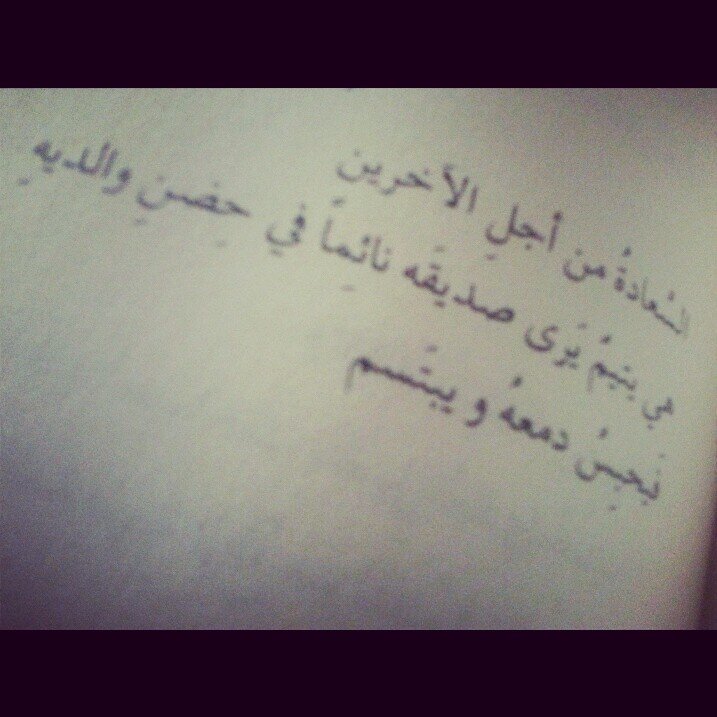 السّعادةُ من أجلِ الآخرين
هي يتيمٌ يَرى صديقَه نائِماً في حِضنِ والديهِ
يَحبِسُ دمعهُ و يبتَسم